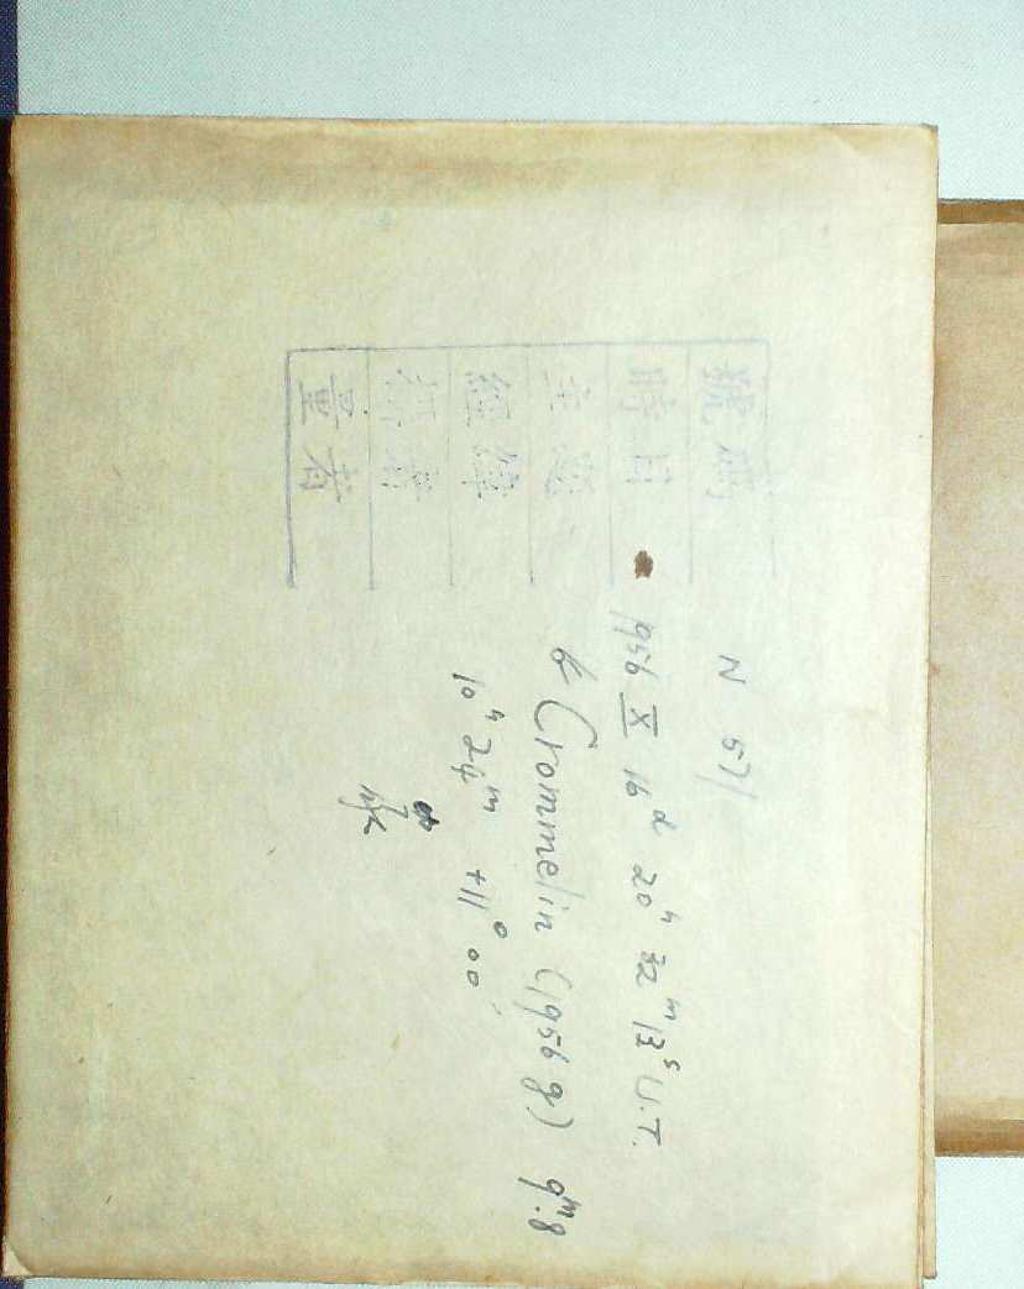 號碼 N 571
時日 1956 X 16ᵈ 20ʰ 32ᵐ 13ˢ U.T.
Crommelin (1956 g) 9ᵐ.8
經緯 10ʰ 24ᵐ +11° 00′
張
量者